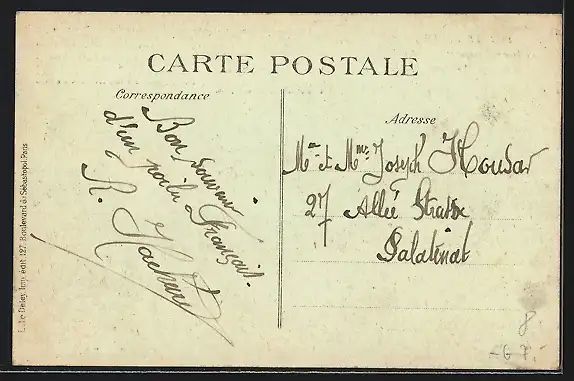 CARTE POSTALE
Correspondance
Adresse
Bon souvenir
d'un poilu Français.
R.
Mr et Mme Joseph Housar
27 Allée Strasse
Palatinat
L. Le Deley, Imp. édit. 127, Boulevard de Sébastopol, Paris
8